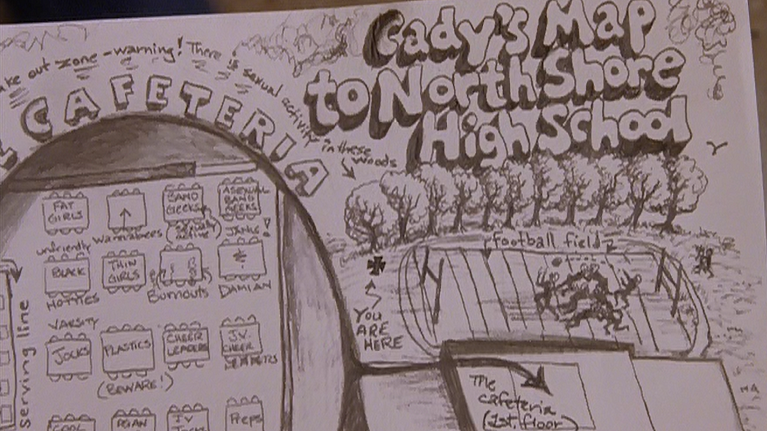 Cady's Map
to North Shore
High School
make out zone-warning! There is sexual activity in these woods
CAFETERIA
FAT GIRLS
BAND GEEKS
ASEXUAL BAND GEEKS
wannabees
JANIS
unfriendly BLACK HOTTIES
THIN GIRLS
Burnouts
DAMIAN
VARSITY JOCKS
PLASTICS
(BEWARE!)
CHEER LEADERS
J.V. CHEER
COOL
ASIAN
J.V.
Preps
serving line
Football field
YOU
ARE
HERE
The
cafeteria
(1st floor)